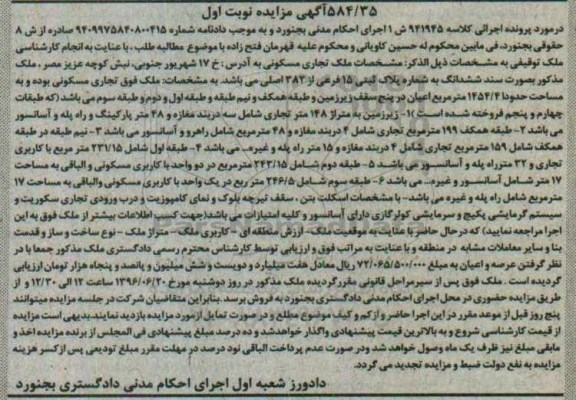 ۵۸۴/۳۵آگهی مزایده نوبت اول
درمورد پرونده اجرائی کلاسه ۹۴۱۹۴۵ ش ۱ اجرای احکام مدنی بجنورد و به موجب دادنامه شماره ۹۴۰۹۹۷۵۸۴۰۸۰۰۴۱۵ صادره از ش ۸
حقوقی بجنورد، فی مابین محکوم له حسین کاویانی و محکوم علیه قهرمان فتح زاده با موضوع مطالبه طلب ، با عنایت به انجام کارشناسی
ملک توقیفی به مشخصات ذیل الذکر: مشخصات ملک تجاری مسکونی به آدرس : خ ۱۷ شهریور جنوبی، نبش کوچه عزیز مصر ، ملک
مذکور بصورت سند ششدانگ به شماره پلاک ثبتی ۱۵ فرعی از ۳۸۲ اصلی می باشد. به مشخصات: ملک فوق تجاری مسکونی بوده و به
مساحت حدودا ۱۴۵۴/۴ مترمربع اعیان در پنج سقف زیرزمین و طبقه همکف و نیم طبقه و طبقه اول و دوم و طبقه سوم می باشد (که طبقات
چهارم و پنجم فروخته شده است )۱- زیرزمین به متراژ ۱۴۸ متر تجاری شامل سه دربند مغازه و ۴۸ متر پارکینگ و راه پله و آسانسور
می باشد ۲- طبقه همکف ۱۹۹ مترمربع تجاری شامل ۴ دربند مغازه و ۴۸ مترمربع شامل راهرو و آسانسور می باشد ۳- نیم طبقه در طبقه
همکف شامل ۱۵۹ مترمربع تجاری شامل ۴ دربند مغازه و ۱۵ متر راه پله و غیره... می باشد ۴- طبقه اول شامل ۲۳۱/۱۵ متر مربع با کاربری
تجاری و ۳۲ متر راه پله و آسانسور می باشد ۵- طبقه دوم شامل ۲۴۳/۱۵ مترمربع در دو واحد با کاربری مسکونی و الباقی به مساحت
۱۷ متر شامل آسانسور و غیره... می باشد ۶- طبقه سوم شامل ۲۴۶/۵ متر ربع در یک واحد با کاربری مسکونی والباقی به مساحت ۱۷
مترمربع شامل راه پله و غیره می باشد- با مشخصات اسکلت بتن ، سقف تیرچه بلوک و نمای کامپوزیت و درب ورودی تجاری سکوریت و
سیستم گرمایشی پکیج و سرمایشی کولرگازی دارای آسانسور و کلیه امتیازات می باشد(جهت کسب اطلاعات بیشتر از ملک فوق به این
اجرا مراجعه نمایید) که درحال حاضر با عنایت به موقعیت ملک- ارزش منطقه ای - کاربری ملک - متراژ ملک - نوع ساخت و ساز و قدمت
بنا و سایر معاملات مشابه در منطقه و با عنایت به مراتب فوق و ارزیابی توسط کارشناس محترم رسمی دادگستری ملک مذکور جمعا با در
نظر گرفتن عرصه و اعیان به مبلغ ۷۲/۰۶۵/۵۰۰/۰۰۰ ریال معادل هفت میلیارد و دویست و شش میلیون و پانصد و پنجاه هزار تومان ارزیابی
گردیده است . ملک فوق پس از سیر مراحل قانونی مقرر گردیده ملک مذکور در روز دوشنبه مورخ ۱۳۹۶/۰۶/۲۰ ساعت ۱۲ الی ۱۲/۳۰ و از
طریق مزایده حضوری در محل اجرای احکام مدنی دادگستری بجنورد به فروش برسد. بنابراین متقاضیان شرکت در جلسه مزایده میتوانند
پنج روز قبل از موعد مقرر در این اجرا حاضر و از کم و کیف موضوع مطلع و در صورت تمایل از مورد مزایده بازدید نمایند.بدیهی است مزایده
از قیمت کارشناسی شروع و به بالاترین قیمت پیشنهادی واگذار خواهد شد و ده درصد مبلغ پیشنهادی فی المجلس از برنده مزایده اخذ و
مابقی مبلغ نیز ظرف یک ماه وصول خواهد شد و در صورت عدم پرداخت الباقی نود درصد در مهلت مقرر مبلغ تودیعی پس از کسر هزینه
مزایده به نفع دولت ضبط و مزایده تجدید می گردد.
دادورز شعبه اول اجرای احکام مدنی دادگستری بجنورد